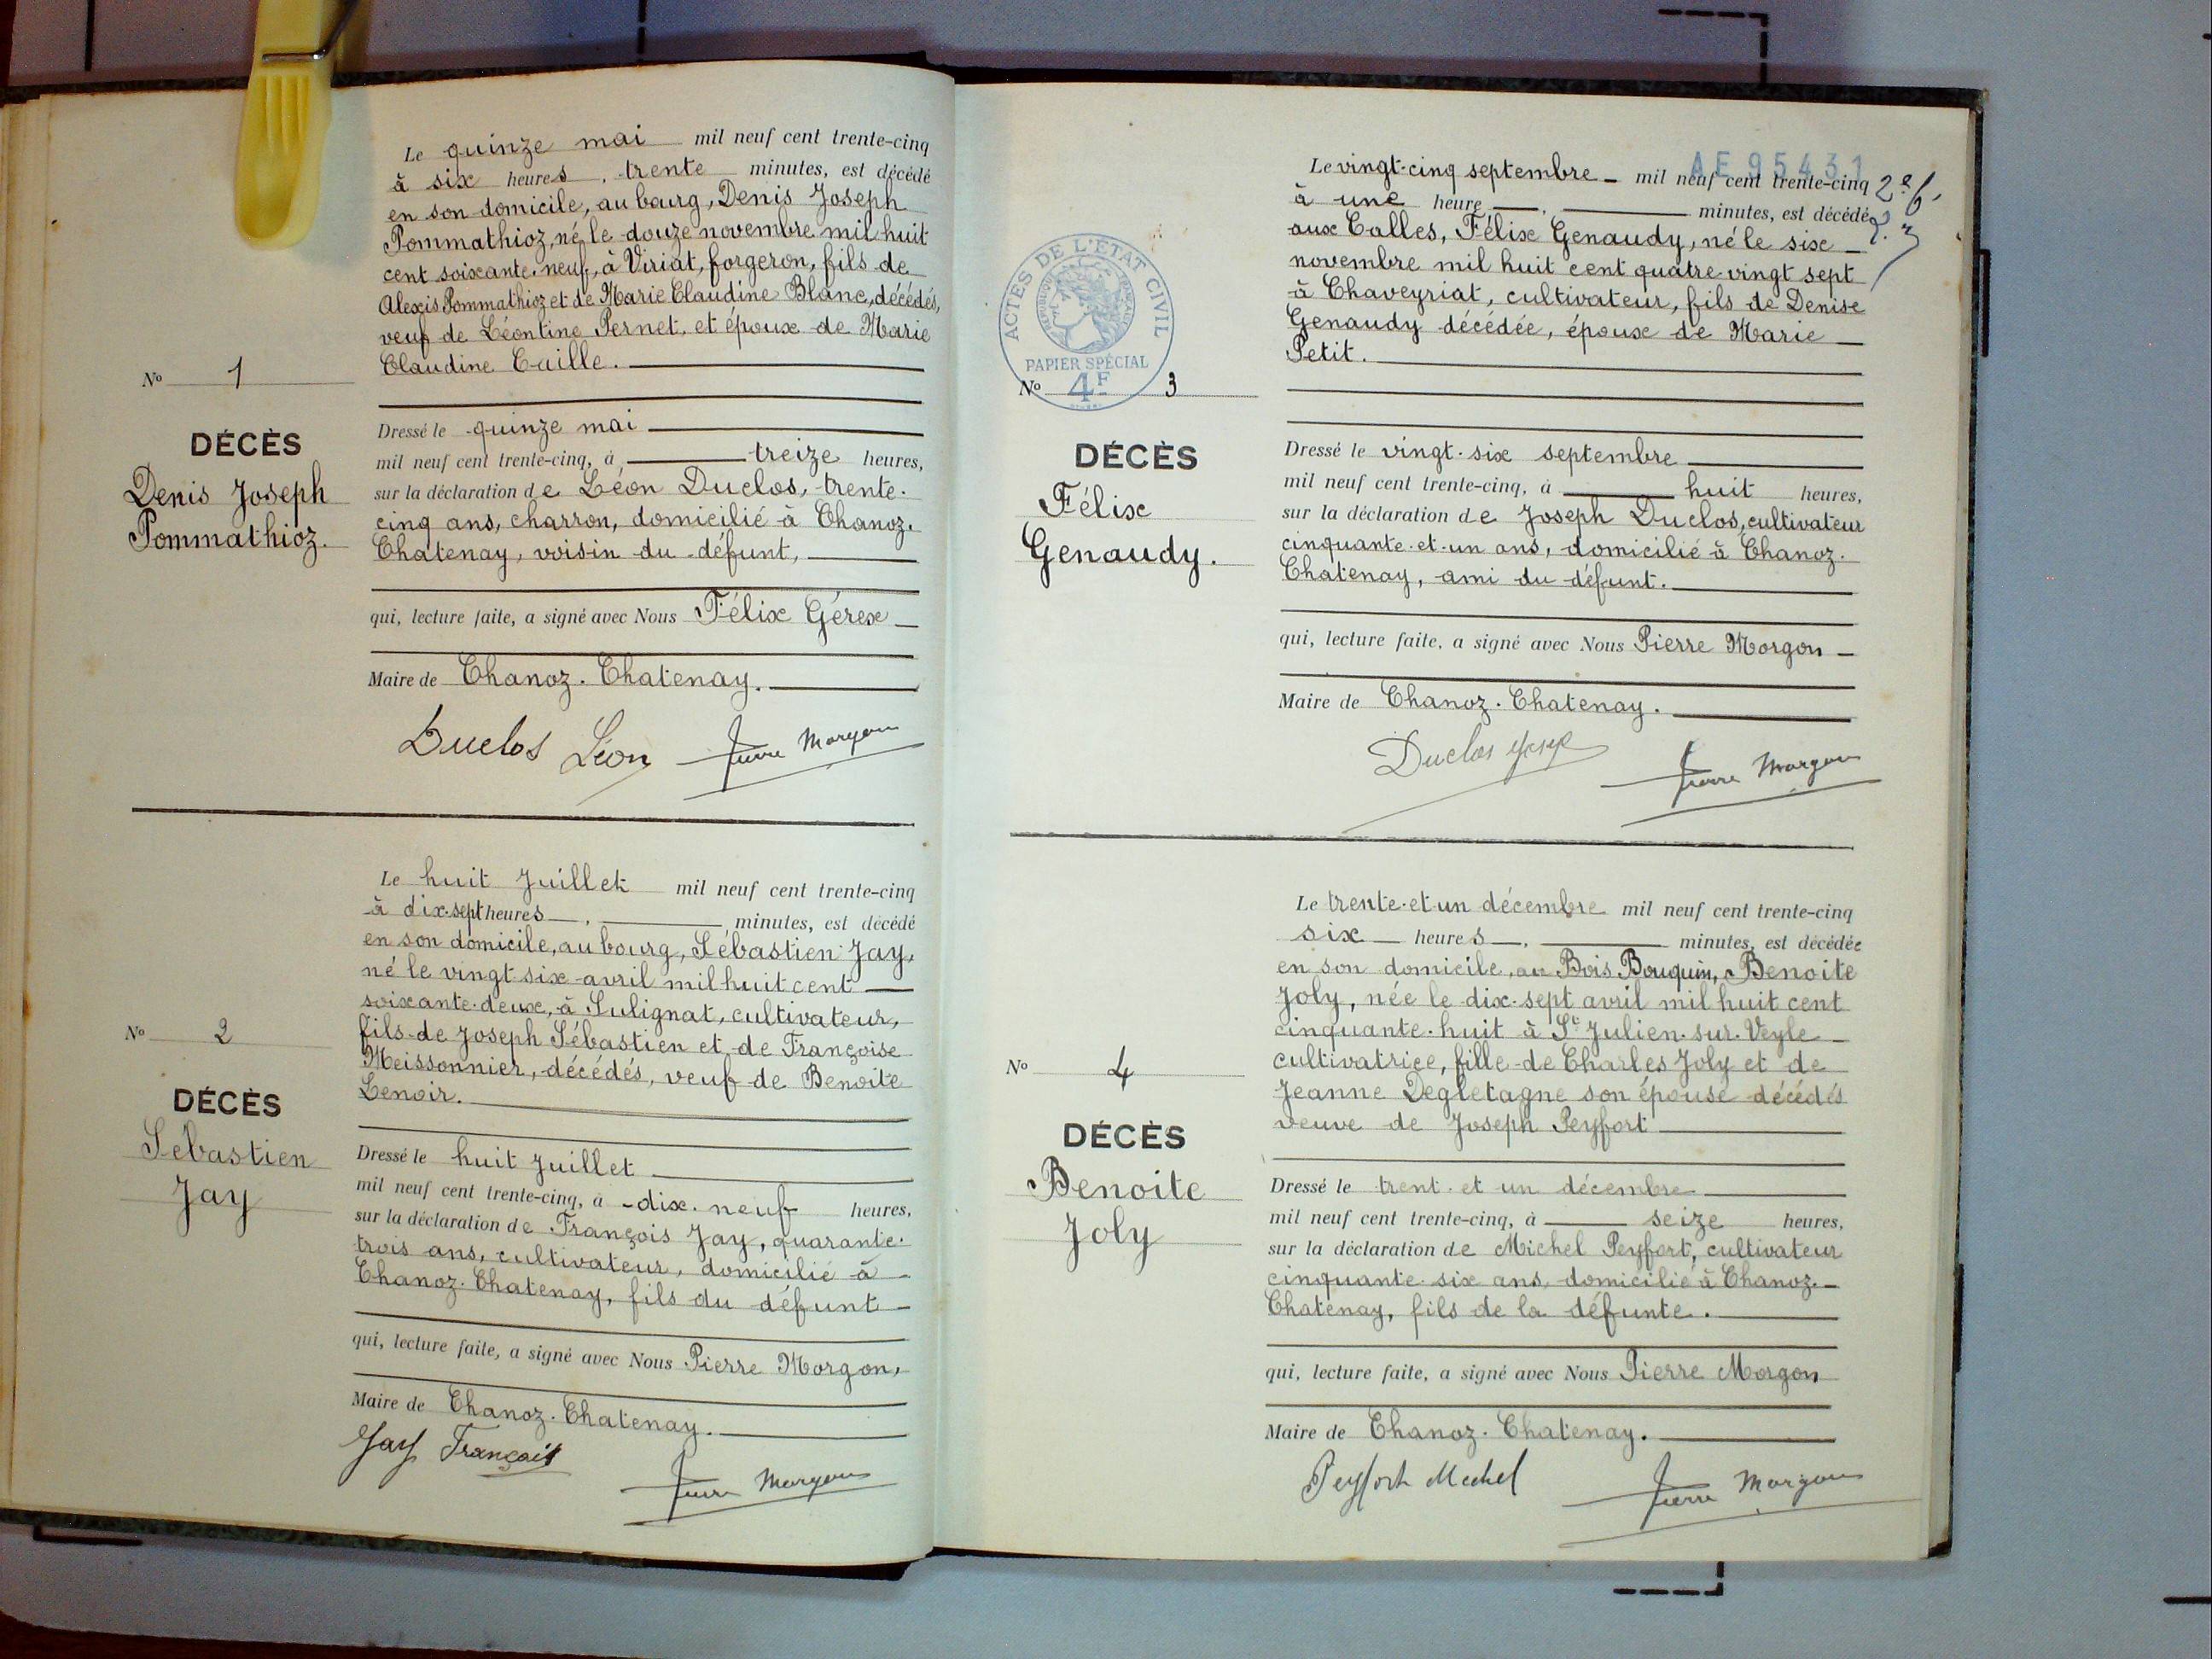 Le quinze mai mil neuf cent trente-cinq
à six heures, trente minutes, est décédé
en son domicile, au bourg, Denis Joseph
Pommathioz, né le douze novembre mil huit
cent soixante-neuf, à Viriat, forgeron, fils de
Alexis Pommathioz et de Marie Claudine Blanc, décédés,
veuf de Léontine Pernet, et époux de Marie
Claudine Caille.
No 1
DÉCÈS
Denis Joseph
Pommathioz.
Dressé le quinze mai
mil neuf cent trente-cinq, à treize heures,
sur la déclaration de Léon Duclos, trente-
cinq ans, charron, domicilié à Chanoz-
Chatenay, voisin du défunt,
qui, lecture faite, a signé avec Nous Félix Gérex
Maire de Chanoz-Chatenay.
Duclos Léon Pierre Morgon
Le huit Juillet mil neuf cent trente-cinq
à dix-sept heures, minutes, est décédé
en son domicile, au bourg, Sébastien Jay,
né le vingt six avril mil huit cent
soixante-deux, à Sulignat, cultivateur,
fils de Joseph Sébastien et de Françoise
Meissonnier, décédés, veuf de Benoite
Lenoir.
No 2
DÉCÈS
Sébastien
Jay
Dressé le huit Juillet
mil neuf cent trente-cinq, à dix-neuf heures,
sur la déclaration de François Jay, quarante-
trois ans, cultivateur, domicilié à
Chanoz-Chatenay, fils du défunt
qui, lecture faite, a signé avec Nous Pierre Morgon,
Maire de Chanoz-Chatenay.
Jay François Pierre Morgon
AE 95431
Le vingt-cinq septembre mil neuf cent trente-cinq
à une heure, minutes, est décédé
aux Calles, Félix Genaudy, né le six
novembre mil huit cent quatre vingt sept
à Chaveyriat, cultivateur, fils de Denise
Genaudy décédée, époux de Marie
Petit.
ACTES DE L'ÉTAT CIVIL
RÉPUBLIQUE FRANÇAISE
PAPIER SPÉCIAL
4F
No 3
DÉCÈS
Félix
Genaudy.
Dressé le vingt-six septembre
mil neuf cent trente-cinq, à huit heures,
sur la déclaration de Joseph Duclos, cultivateur
cinquante-et-un ans, domicilié à Chanoz-
Chatenay, ami du défunt.
qui, lecture faite, a signé avec Nous Pierre Morgon
Maire de Chanoz-Chatenay.
Duclos Pierre Morgon
Le trente-et-un décembre mil neuf cent trente-cinq
six heures, minutes, est décédée
en son domicile, au Bois Bouquin, Benoite
Joly, née le dix-sept avril mil huit cent
cinquante-huit à St Julien-sur-Veyle
cultivatrice, fille de Charles Joly et de
Jeanne Degletagne son épouse décédés
veuve de Joseph Peyfort
No 4
DÉCÈS
Benoite
Joly
Dressé le trent-et un décembre
mil neuf cent trente-cinq, à seize heures,
sur la déclaration de Michel Peyfort, cultivateur
cinquante-six ans, domicilié à Chanoz-
Chatenay, fils de la défunte.
qui, lecture faite, a signé avec Nous Pierre Morgon
Maire de Chanoz-Chatenay.
Peyfort Michel Pierre Morgon